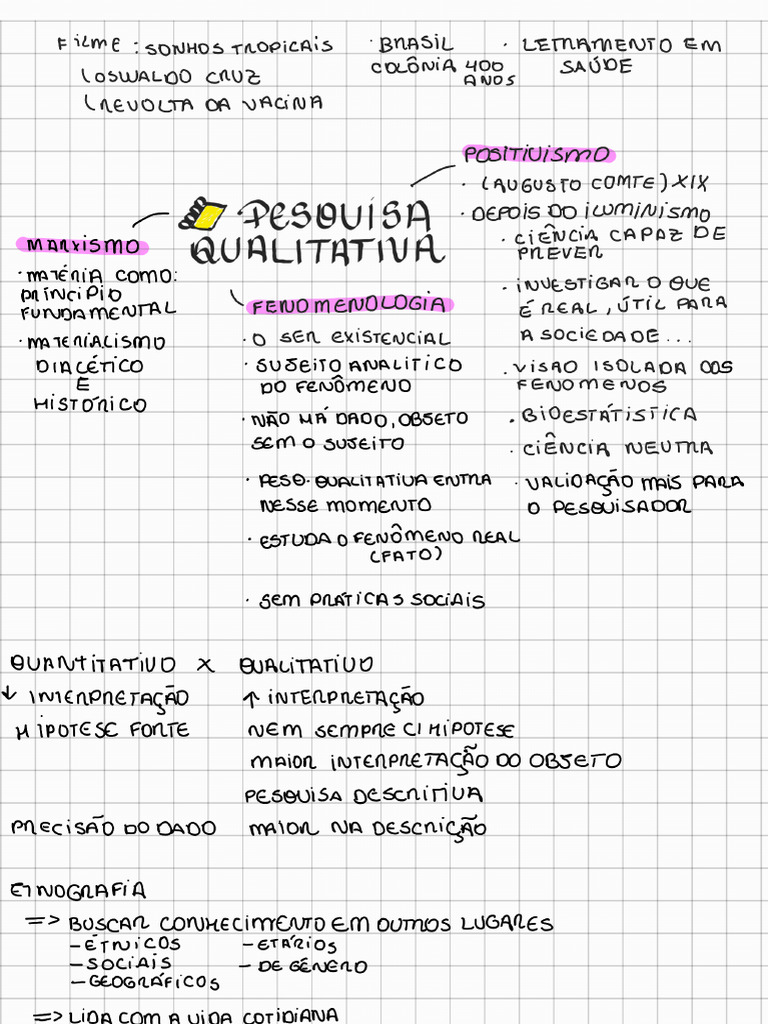 FILME : SONHOS TROPICAIS
OSWALDO CRUZ
REVOLTA DA VACINA
· BRASIL
COLÔNIA 400
ANOS
· LETRAMENTO EM
SAÚDE
POSITIVISMO
· (AUGUSTO COMTE) XIX
· DEPOIS DO ILUMINISMO
· CIÊNCIA CAPAZ DE
PREVER
· INVESTIGAR O QUE
É REAL, ÚTIL PARA
A SOCIEDADE...
· VISÃO ISOLADA DOS
FENOMENOS
· BIOESTÁTISTICA
· CIÊNCIA NEUTRA
· VALIDAÇÃO MAIS PARA
O PESQUISADOR
PESQUISA
QUALITATIVA
MARXISMO
· MATÉRIA COMO:
PRÍNCIPIO
FUNDAMENTAL
· MATERIALISMO
DIALÉTICO
E
HISTÓRICO
FENOMENOLOGIA
· O SER EXISTENCIAL
· SUJEITO ANALITICO
DO FENÔMENO
· NÃO HÁ DADO, OBJETO
SEM O SUJEITO
· PESQ. QUALITATIVA ENTRA
NESSE MOMENTO
· ESTUDA O FENÔMENO REAL
(FATO)
· SEM PRÁTICAS SOCIAIS
QUANTITATIVO X QUALITATIVO
↓ INTERPRETAÇÃO ↑ INTERPRETAÇÃO
HIPOTESE FORTE NEM SEMPRE C/ HIPOTESE
MAIOR INTERPRETAÇÃO DO OBJETO
PESQUISA DESCRITIVA
PRECISÃO DO DADO MAIOR NA DESCRIÇÃO
ETNOGRAFIA
=> BUSCAR CONHECIMENTO EM OUTROS LUGARES
- ÉTNICOS - ETÁRIOS
- SOCIAIS - DE GÊNERO
- GEOGRÁFICOS
=> LIDA COM A VIDA COTIDIANA